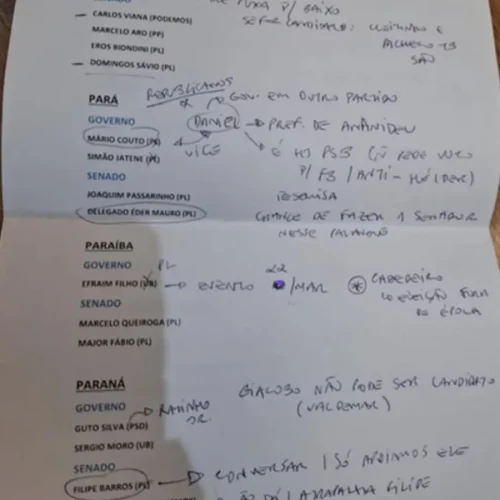 PUXA P/ BAIXO
CARLOS VIANA (PODEMOS)
SE FOR CANDIDATO: E
MARCELO ARO (PP)
PACHECO
EROS BIONDINI (PL)
SÃO
DOMINGOS SÁVIO (PL)
PARÁ
REPUBLICANOS
GOV. EM OUTRO PARTIDO
GOVERNO
DANIEL → PREF. DE
MÁRIO COUTO
VICE
É HJ PSB
SIMÃO JATENE
P/ FB / ANTI-HELDER)
SENADO
PESQUISA
JOAQUIM PASSARINHO (PL)
CHANCE DE FAZER 1 SENADOR
DELEGADO ÉDER MAURO (PL)
NESSE PALANQUE
PARAÍBA
GOVERNO PL
EFRAIM FILHO (UB) → EVENTO /MAR
CABEDELO
ELEIÇÃO FORA
SENADO
DE ÉPOCA
MARCELO QUEIROGA (PL)
MAJOR FÁBIO (PL)
PARANÁ
GIACOBO NÃO PODE SER CANDIDATO
GOVERNO
(VALDEMAR)
RATINHO
JR.
GUTO SILVA (PSD)
SERGIO MORO (UB)
SENADO
CONVERSAR / SÓ APOIAMOS ELE
FILIPE BARROS (PL)
FILIPE